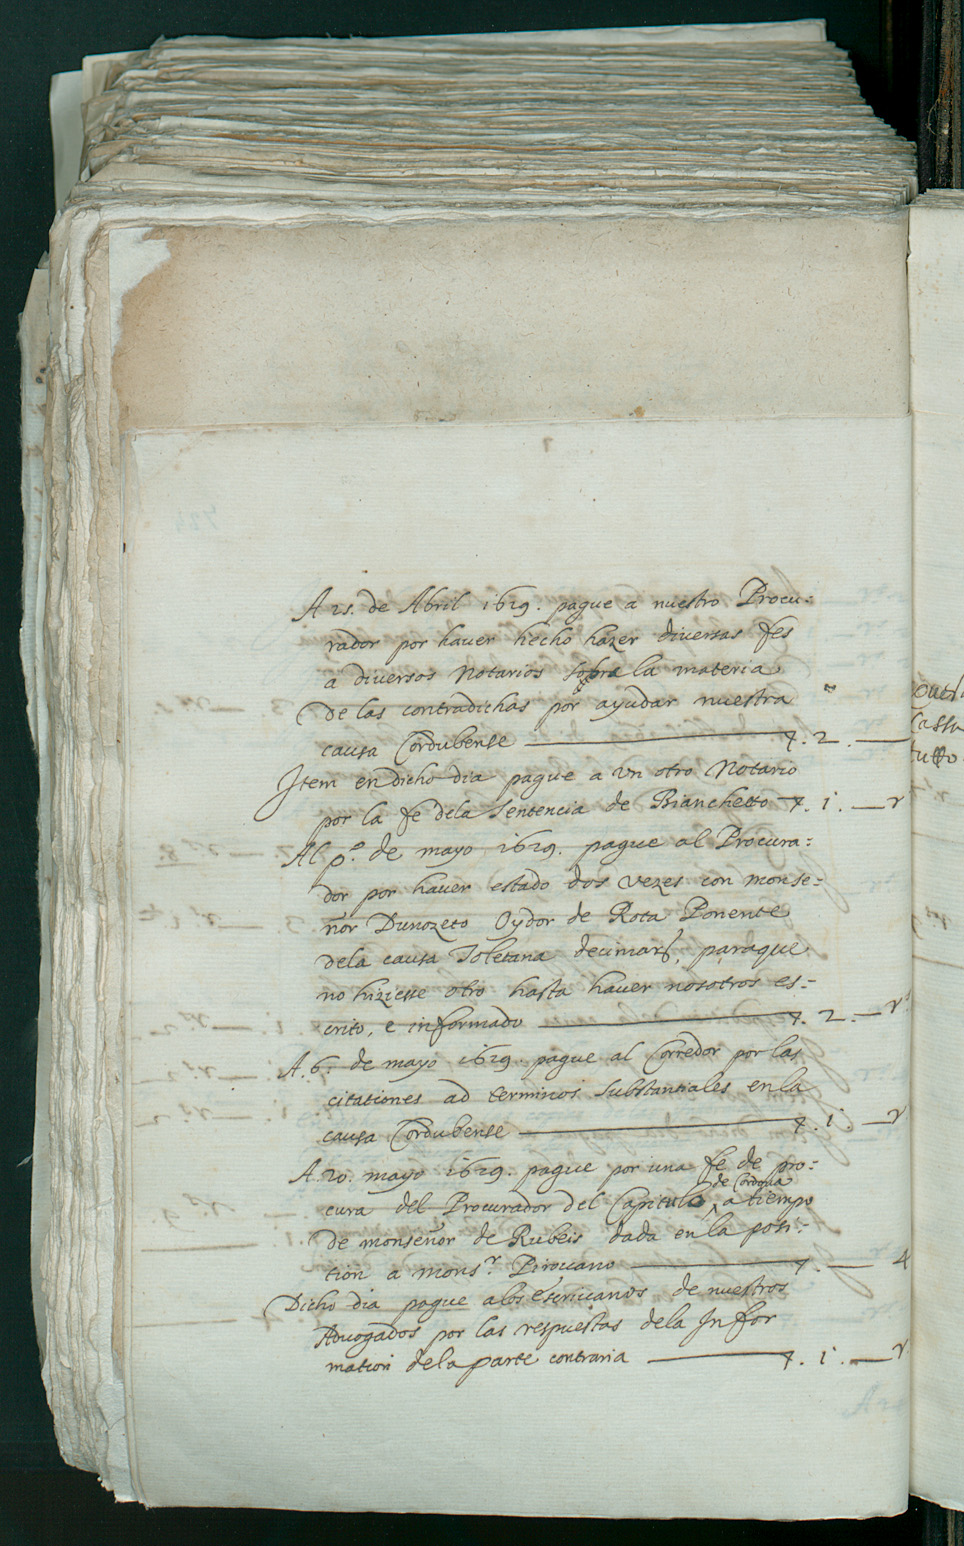 A 25. de Abril 1629. pague a nuestro Procu:
rador por hauer hecho hazer diversas fes
a diversos Notarios sobra la materia
De las contradichas por ayudar nuestra
causa Cordubense — 7. 2. —
Item en dicho dia pague a Un otro Notario
por la fe dela Sentencia de Bianchetto 7. 1. — r
Al p.º de mayo 1629. pague al Procura:
dor por hauer estado dos vezes con monse:
ñor Dunozeto Oydor de Rota Ponente
dela causa Toletana decimarũ, paraque
no hiziesse otro hasta hauer nosotros es:
crito, e informado — 7. 2. — r
A. 6. de mayo 1629. pague al Corredor por las
citationes ad terminos substantiales en la
causa Cordubense — 7. 1 — r
A. 20. mayo 1629. pague por una fe de pro:
cura del Procurador del Capitulo de Cordoua a tiempo
de monseñor de Rubeis dada en la posi:
tion a mons.r Pirouano — 7. — 4
Dicho dia pague a los escriuanos de nuestros
Aduogados por las respuestas dela Infor
mation dela parte contraria — 7. 1. — r